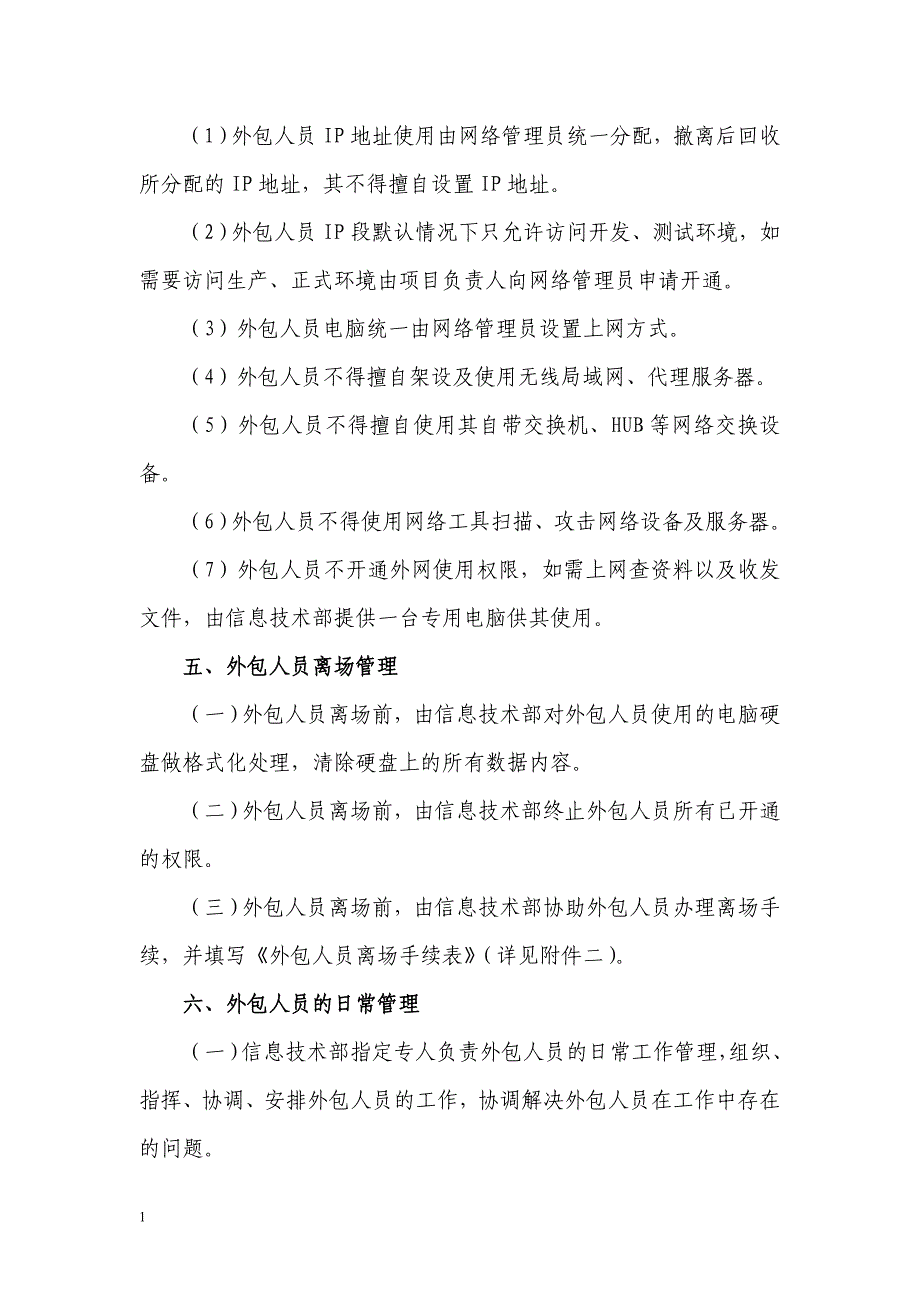 （1）外包人员 IP 地址使用由网络管理员统一分配，撤离后回收
所分配的 IP 地址，其不得擅自设置 IP 地址。
（2）外包人员 IP 段默认情况下只允许访问开发、测试环境，如
需要访问生产、正式环境由项目负责人向网络管理员申请开通。
（3）外包人员电脑统一由网络管理员设置上网方式。
（4）外包人员不得擅自架设及使用无线局域网、代理服务器。
（5）外包人员不得擅自使用其自带交换机、HUB 等网络交换设
备。
（6）外包人员不得使用网络工具扫描、攻击网络设备及服务器。
（7）外包人员不开通外网使用权限，如需上网查资料以及收发
文件，由信息技术部提供一台专用电脑供其使用。
五、外包人员离场管理
（一）外包人员离场前，由信息技术部对外包人员使用的电脑硬
盘做格式化处理，清除硬盘上的所有数据内容。
（二）外包人员离场前，由信息技术部终止外包人员所有已开通
的权限。
（三）外包人员离场前，由信息技术部协助外包人员办理离场手
续，并填写《外包人员离场手续表》（详见附件二）。
六、外包人员的日常管理
（一）信息技术部指定专人负责外包人员的日常工作管理，组织、
指挥、协调、安排外包人员的工作，协调解决外包人员在工作中存在
的问题。
1